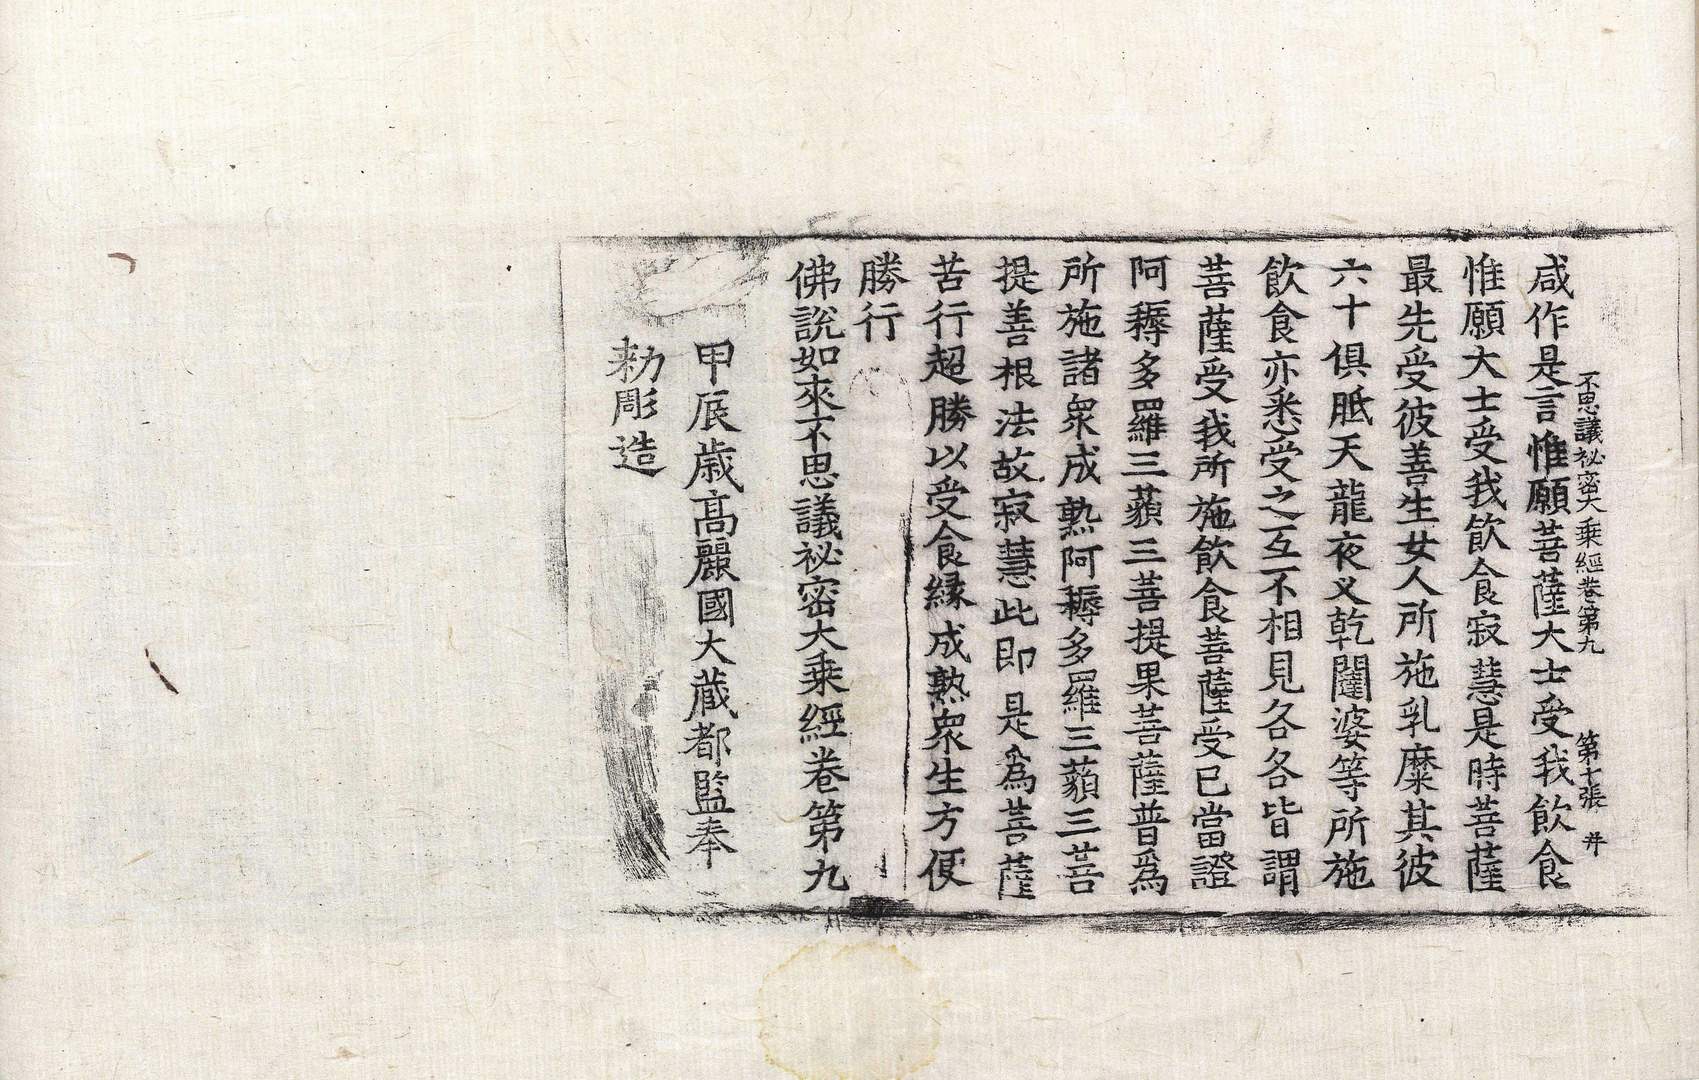 不思議祕密大乘經卷第九 第十張
咸作是言惟願菩薩大士受我飲食
惟願大士受我飲食寂慧是時菩薩
最先受彼善生女人所施乳糜其彼
六十俱胝天龍夜叉乾闥婆等所施
飲食亦悉受之互不相見各各皆謂
菩薩受我所施飲食菩薩受已當證
阿耨多羅三藐三菩提果菩薩普爲
所施諸衆成熟阿耨多羅三藐三菩
提善根法故寂慧此即是為菩薩
苦行超勝以受食縁成熟衆生方便
勝行
佛說如來不思議祕密大乘經卷第九
甲辰歲高麗國大藏都監奉
勑彫造